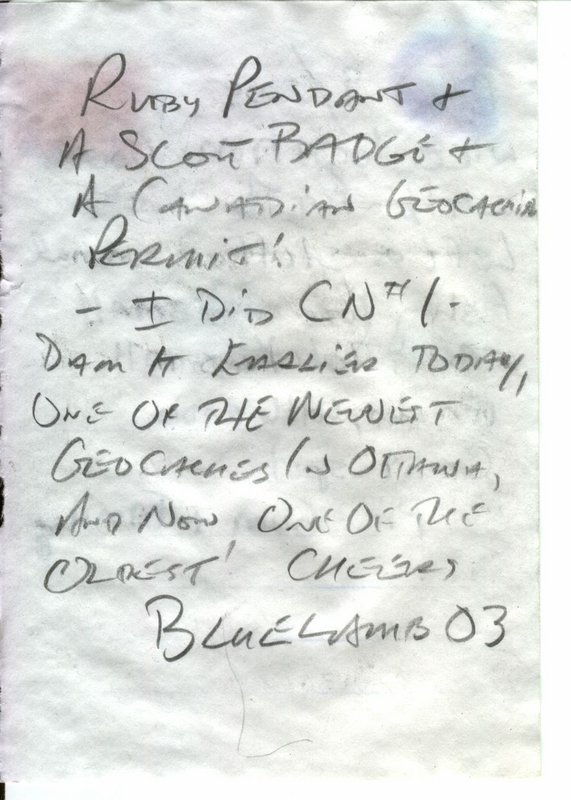 RUBY PENDANT +
A SCOUT BADGE +
A CANADIAN GEOCACHING
PERMIT!
- I DID CN #1 -
DAM IT EARLIER TODAY,
ONE OF THE NEWEST
GEOCACHES IN OTTAWA,
AND NOW ONE OF THE
OLDEST! CHEERS
BLUELAMB03